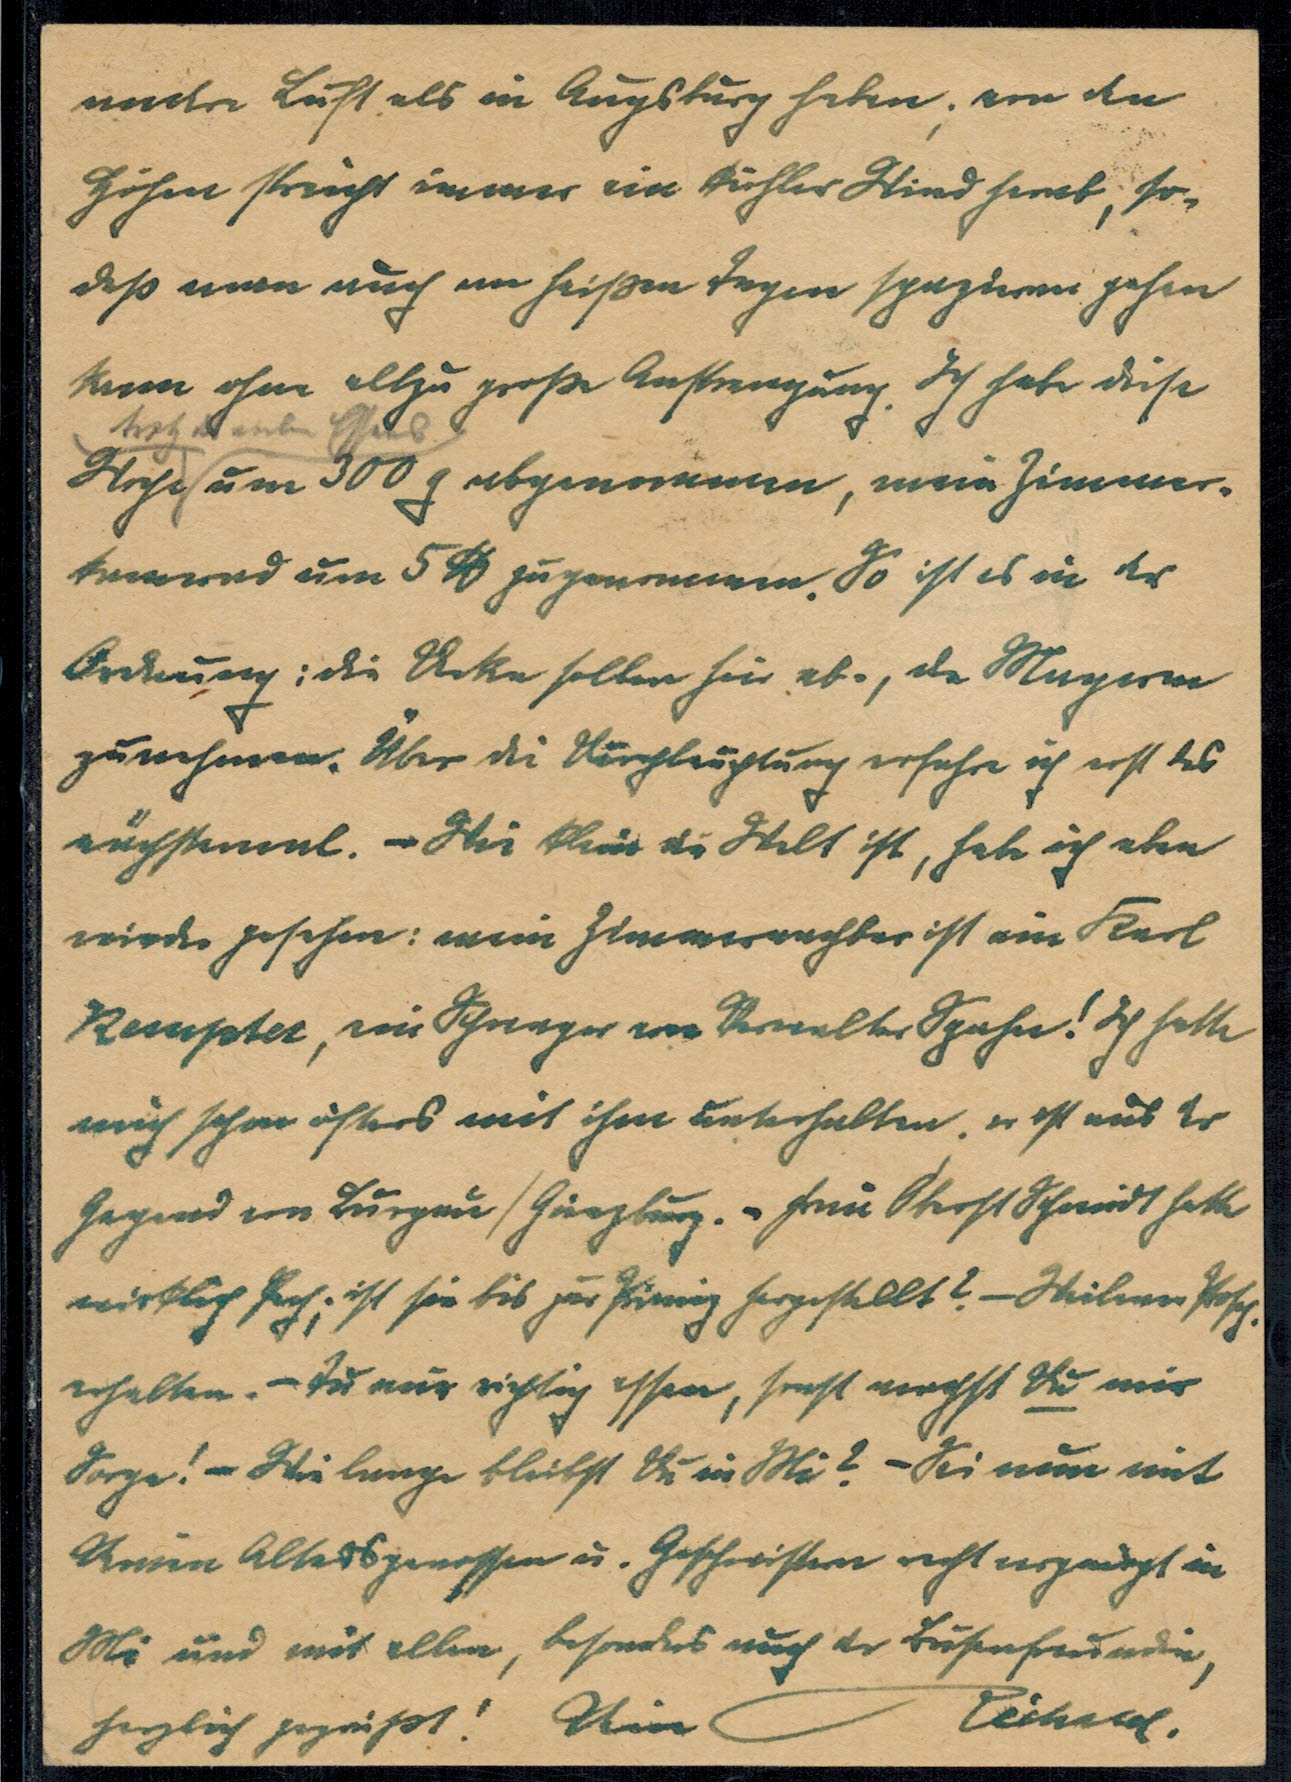 andre Luft als in Augsburg haben; von den
Höhen streicht immer ein kühler Wind herab, so-
daß man auch an heißen Tagen spazieren gehen
kann ohne allzu große Anstrengung. Ich habe diese
trotz des vielen Essens
Woche um 300 g abgenommen, mein Zimmer-
kamerad um 5 ℔ zugenommen. So ist es in der
Ordnung: die Dicken sollen hier ab-, die Mageren
zunehmen. Über die Durchleuchtung erfahre ich erst das
nächstemal. – Wie klein die Welt ist, habe ich eben
wieder gesehen: mein Zimmernachbar ist ein Karl
Kempter, ein Schwager von Verwalter Spahn! Ich hatte
mich schon öfters mit ihm unterhalten, er ist aus der
Gegend von Burgau/Günzburg. – Frau Oberst Schmidt hatte
wirklich Pech; ist sie bis zur Primiz hergestellt? – Weilerer
erhalten. – Tu nur richtig essen, sonst machst Du mir
Sorge! – Wie lange bleibst Du in Mi? – Sei nun mit
Deinen Altersgenossen u. Geschwistern recht vergnügt in
Mi und mit allen, besonders auch der Busenfreundin,
herzlich gegrüßt! Dein Richard.